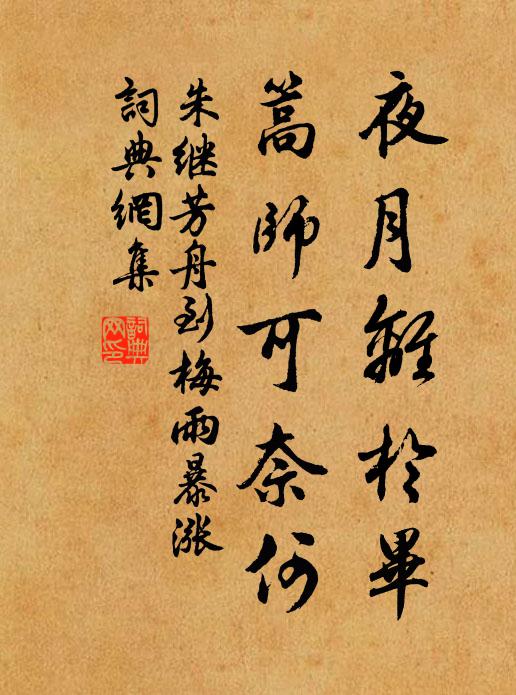 夜月離於畢
篙師可奈何
朱继芳舟到梅雨暴漲
詞典網集
詞典
网印